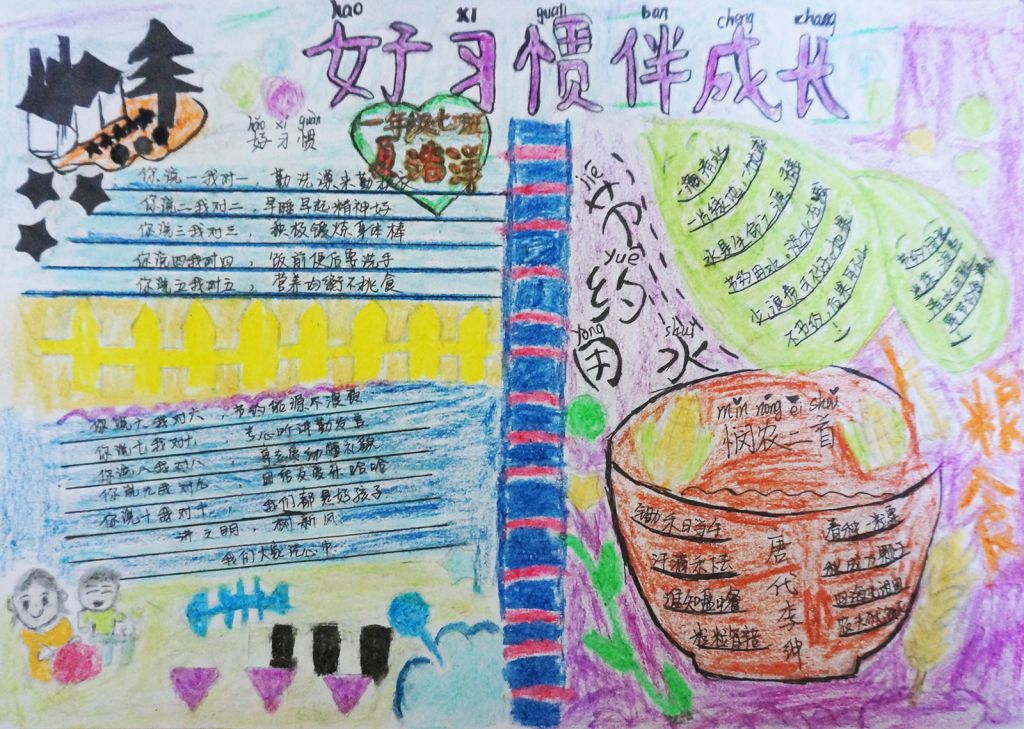 hao xi guan ban cheng zhang
好习惯伴成长
一年级七班
夏浩洋
hao xi guan
好习惯
你说一我对一，勤洗澡来勤
你说二我对二，早睡早起精神好
你说三我对三，积极锻炼身体棒
你说四我对四，饭前便后要洗手
你说五我对五，营养均衡不挑食
你说六我对六，节约能源不浪费
你说七我对七，专心听讲勤发言
你说八我对八，尊老爱幼懂礼貌
你说九我对九，团结友爱乐哈哈
你说十我对十，我们都是好孩子
讲文明，树新风
我们大家记心中
jié yuē yòng shuǐ
节约用水
一滴清水
一片绿地，一个地球
节约用水
mǐn nóng èr shǒu
悯农二首
唐代李绅
春种一粒粟
秋成万颗子
四海无闲田
农夫犹饿死
锄禾日当午
汗滴禾下土
谁知盘中餐
粒粒皆辛苦
粮食